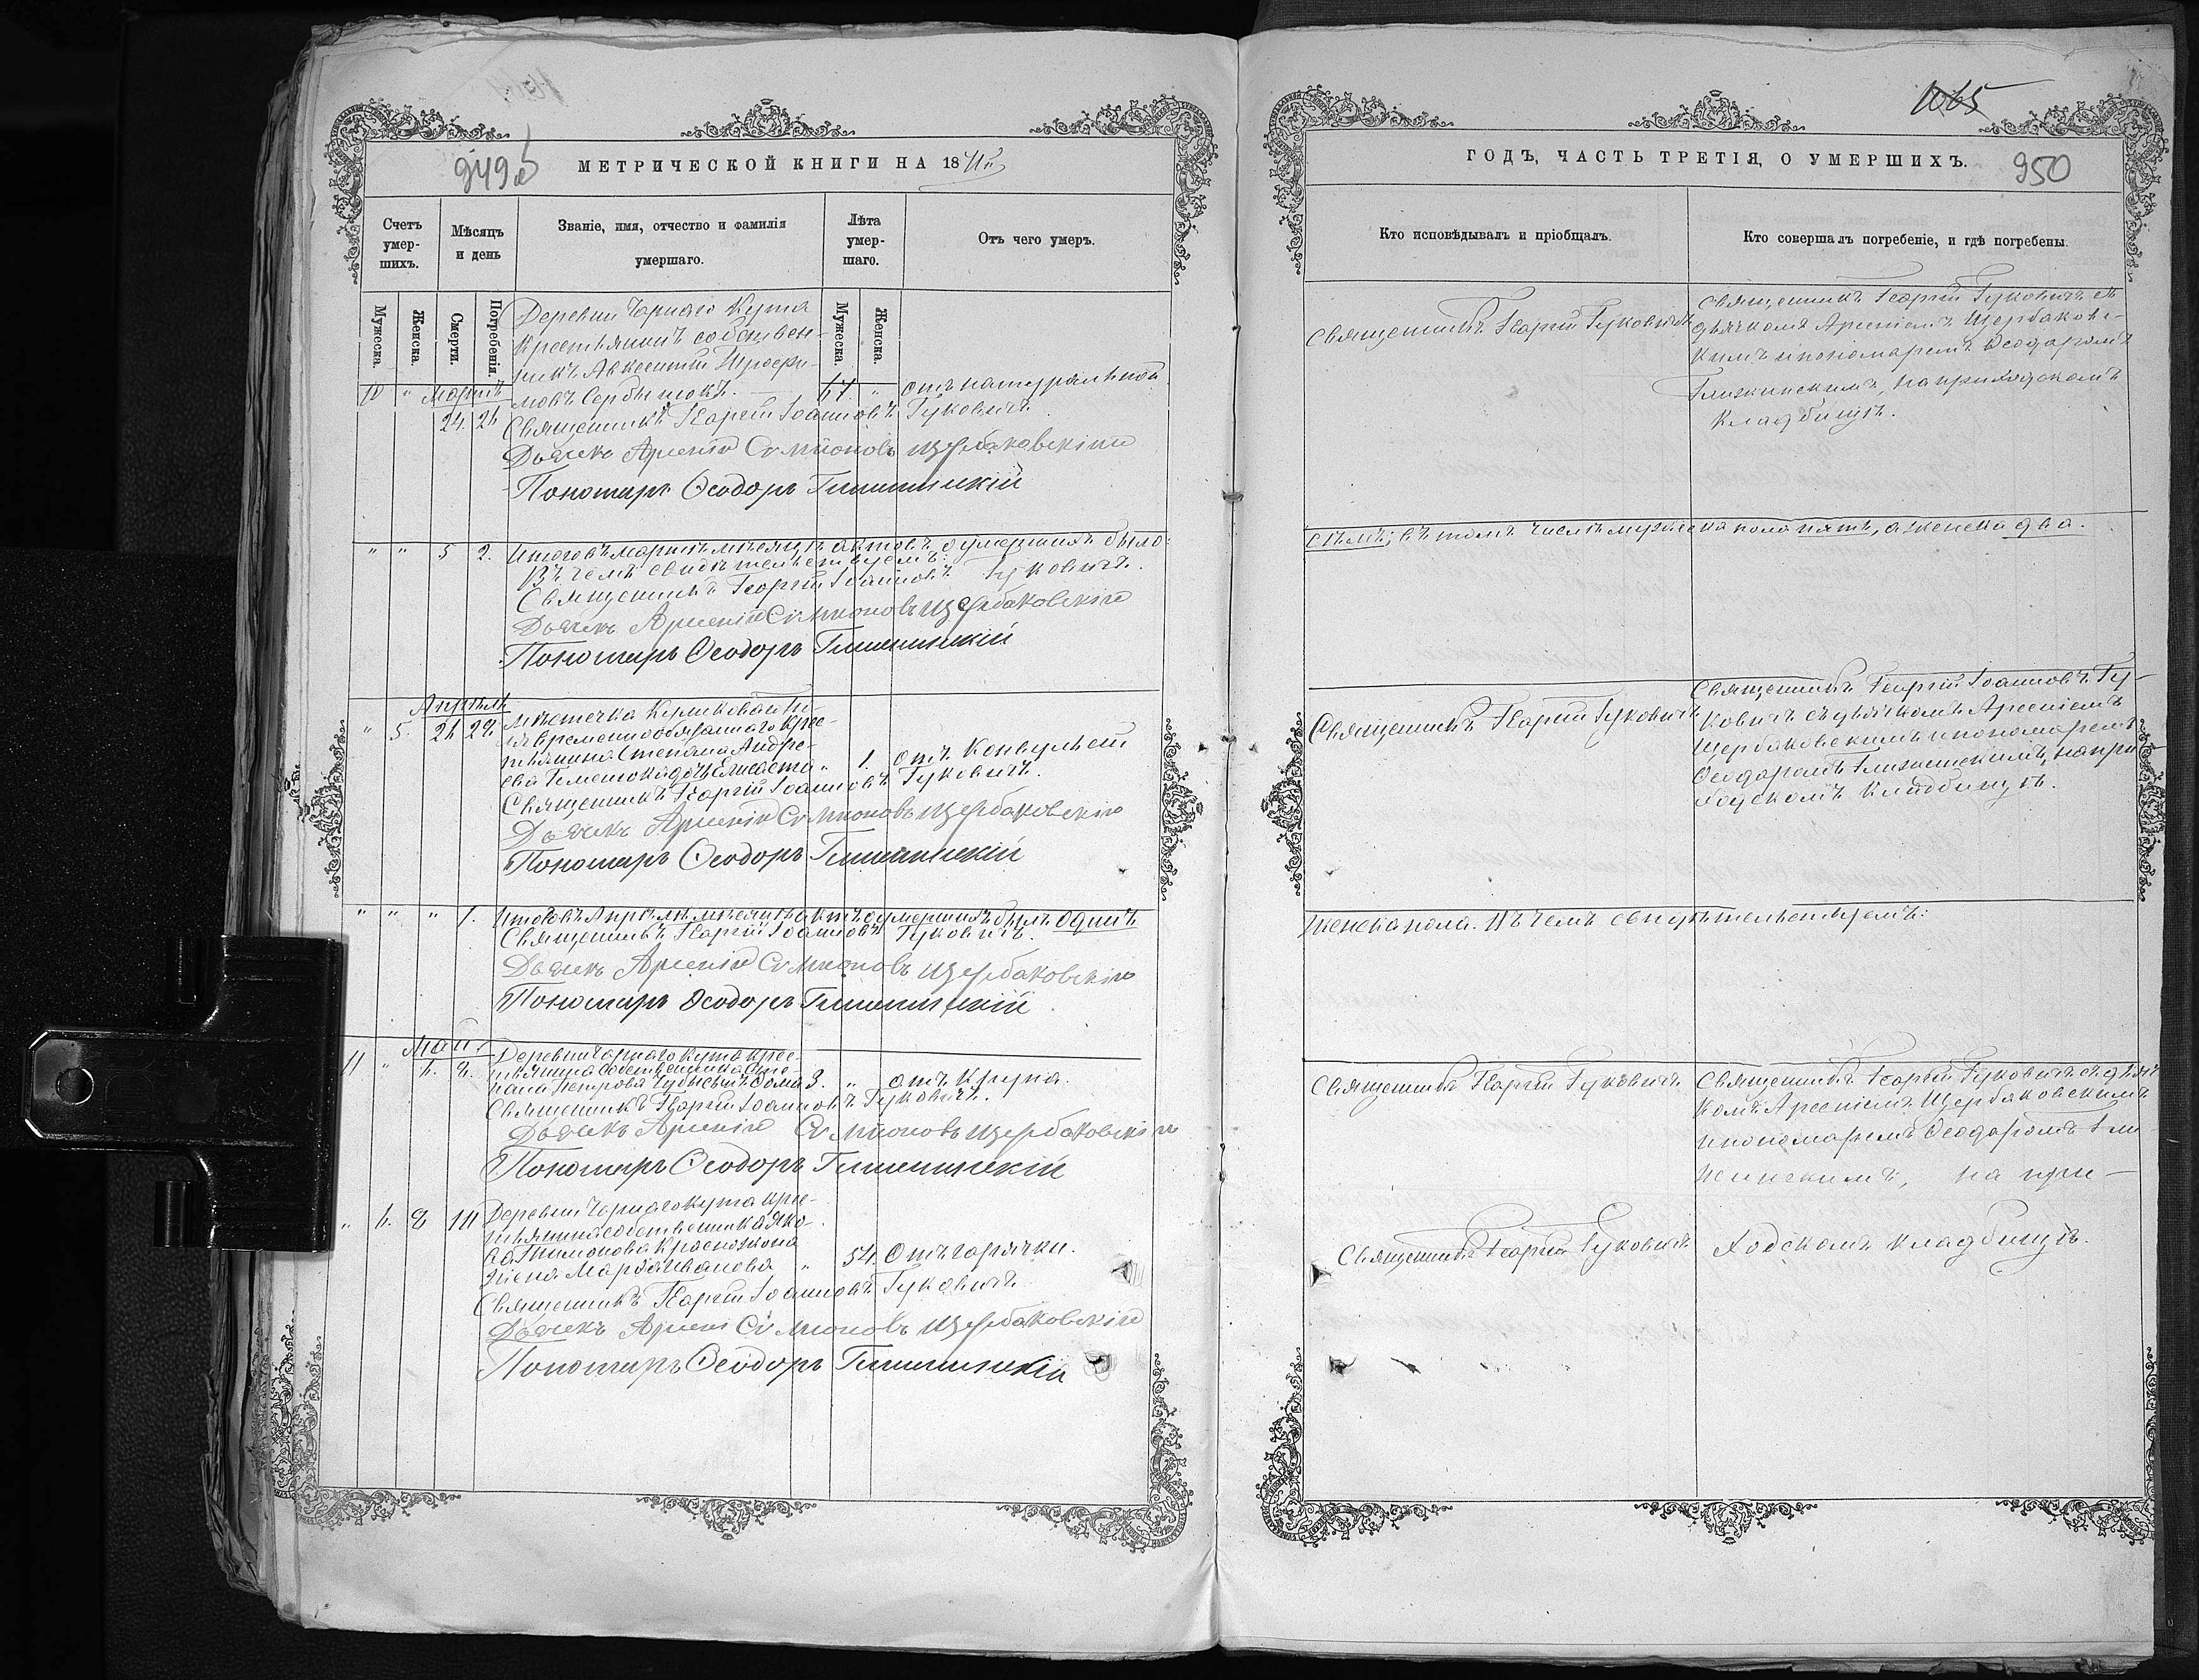 949 об
МЕТРИЧЕСКОЙ КНИГИ НА 18
Счетъ умер-шихъ.
Мѣсяцъ и день
Званіе, имя, отчество и фамилія умершаго.
Лѣта умер-шаго.
Отъ чего умеръ.
Мужеска.
Женска.
Смерти.
Погребенія.
Мужеска.
Женска.
Деревни Чорнаго Кута
Крестьянинъ собствен-
никъ Авксентій
10 " Мартъ
67. " отъ натуральной
24. 26 Священникъ Георгій Іоанновъ Гуковичъ.
Дьячекъ Арсеній Симионовъ Щербаковскій
Пономарь Ѳеодоръ
" " 5 2. Итого въ мартѣ мѣсяцѣ актовъ о умершихъ было:
Въ чемъ свидѣтельствуемъ:
Священникъ Георгій Іоанновъ Гуковичъ.
Дьячекъ Арсеній Симионовъ Щербаковскій
Пономарь Ѳеодоръ
Апрѣль
" 5. 26 28. Мѣстечка
временно обязаннаго крес-
тьянина Степана Андре-
ева дочь " 1. отъ конвульсій
Священникъ Георгій Іоанновъ Гуковичъ.
Дьячекъ Арсеній Симионовъ Щербаковскій
Пономарь Ѳеодоръ
" " " 1. Итого въ Апрѣлѣ мѣсяцѣ актъ о умершихъ былъ одинъ
Священникъ Георгій Іоанновъ Гуковичъ.
Дьячекъ Арсеній Симионовъ Щербаковскій
Пономарь Ѳеодоръ
Май
Деревни Чорнаго Кута крес-
11 " 6. 8. тьянина собственника Сте-
пана Петрова сынъ Ѳома 3. " отъ крупа.
Священникъ Георгій Іоанновъ Гуковичъ.
Дьячекъ Арсеній Симионовъ Щербаковскій
Пономарь Ѳеодоръ
Деревни Чорнаго Кута крес-
" 6. 8 10 тьянина собственника Яко-
ва
жена Марѳа Иванова " 54. Отъ горячки.
Священникъ Георгій Іоанновъ Гуковичъ
Дьячекъ Арсені Симионовъ Щербаковскій
Пономарь Ѳеодоръ
1065
ГОДЪ, ЧАСТЬ ТРЕТІЯ, О УМЕРШИХЪ.
950
Кто исповѣдывалъ и пріобщалъ.
Кто совершалъ погребеніе, и гдѣ погребены.
Священникъ Георгій Гуковичъ
Священникъ Георгій Гуковичъ съ
дьячкомъ Арсеніемъ Щербаковс-
кимъ и пономаремъ Ѳеодоромъ
на приходскомъ
кладбищѣ.
семь; въ томъ числѣ мужеска пола пять, а женска два.
Священникъ Георгій Гуковичъ
Священникъ Георгій Іоанновъ Гу-
ковичъ съ дьячкомъ Арсеніемъ
Щербаковскимъ и пономаремъ
Ѳеодоромъ на при-
ходскомъ кладбищѣ.
женска пола. Въ чемъ свидѣтельствуемъ:
Священникъ Георгій Гуковичъ
Священникъ Георгій Гуковичъ съ дьяч-
комъ Арсеніемъ Щербаковскимъ
и пономаремъ Ѳеодоромъ
на при-
Священникъ Георгій Гуковичъ
ходскомъ кладбищѣ.